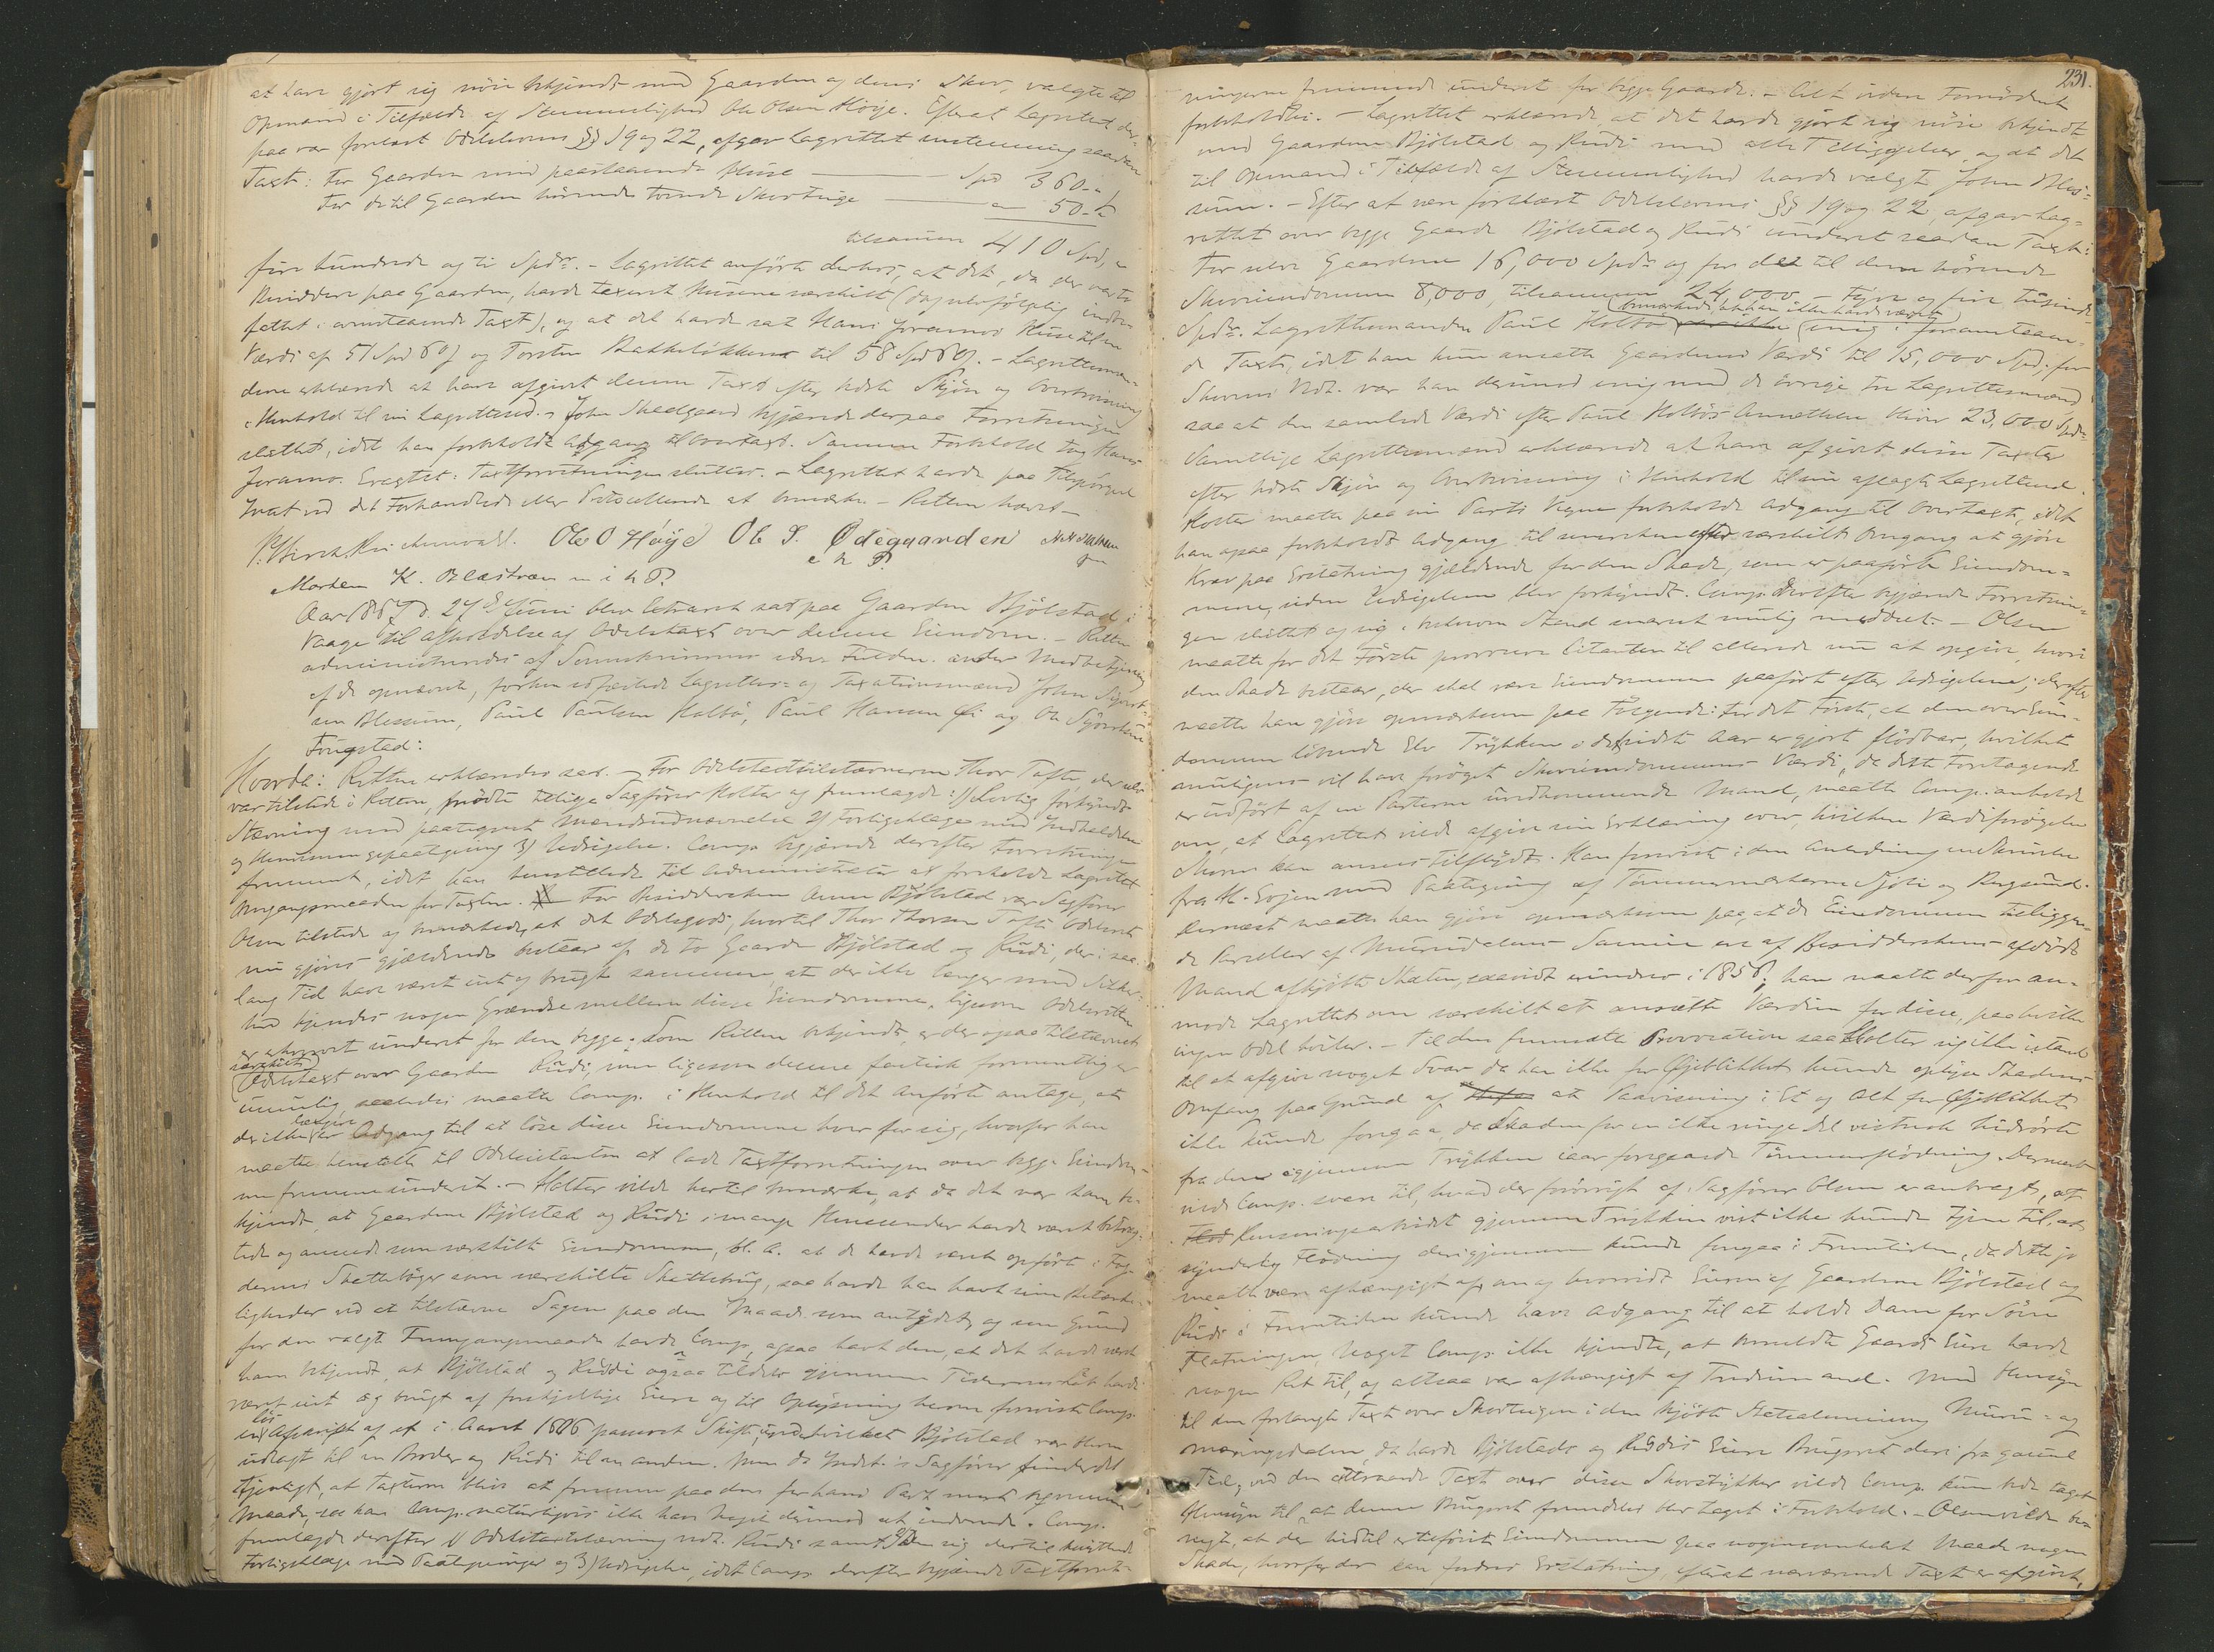 at have gjort sig nöie bekjendt med Gaarden og dens Skov, valgte til
Opmand i Tilfælde af Stemmelighed Ole Olsen Höiye. Efterat Lagrettet der-
paa var forelæst Odelslovens §§ 19 og 22, afgav Lagrettet enstemmig saadan
Taxt: For Gaarden med paastaaende Huse Spd 360 „
For de til Gaarden hörende tvende Skovteige „ 50 „
tilsammen 410 Spd, „
fire hundrede og ti Spdr. – Lagrettet anförte derhos, at det, da der var to
Besiddere paa Gaarden, havde taxeret Husene særskilt (dog selvfölgelig indbe-
fattet i ovenstaaende Taxt), og at det havde sat Hans Joramos Huse til en
Værdi af 51 Spd 60 s og Torsten Bakkelökkens til 58 Spd 60 s. – Lagrettemæn-
dene erklærede at have afgivet denne Taxt efter bedste Skjön og Overbevisning
i Henhold til sin Lagretteed. – John Skaalgaard begjærede derpaa Forretningen
sluttet, idet han forbeholdt Adgang til Overtaxt. Samme Forbehold tog Hans
Joramo. Eragtet: Taxtforretningen sluttes. – Lagrettet havde paa Tilspörgsel
Intet ved det Forhandlede eller Protocollerede at bemærke. – Retten hævet –
Ole O Höye Ole S. Ödegaarden
m h P.
Morten K. Blæstræn m i h P.
Aar 1867 d. 27de Juni blev Extraret sat paa Gaarden Bjölstad i
Vaage til Afholdelse af Odelstaxt over denne Eiendom. – Retten
administreredes af Sorenskriverens edsv. Fuldm. under Medbetjening
af de opnævnte, forhen edfæstede Lagrettes- og Taxationsmænd John Sjurd-
sen Blessum, Paul Paulsen Holbö, Paul Hansen Öi og Ole Syverssen
Fougstad:
Hvorda: Retten erklæredes sat. – For Odelstaxtcitanten Thor Tofte, der selv
var tilstede i Retten, mödte tillige Sagförer Holter og fremlagde: 1) Lovlig forkyndt
Stævning med paategnet Mandsudnævnelse 2) Forligsklage med Indkaldelse
og Henvisningspaategning 3) Udsigelse. Comp. begjærede derefter Forretningen
fremmet, idet han henstillede til Administrator at foreholde Lagrettet
Omgangsmaaden for Taxten. For Besiddersken Anne Bjölstad var Sagförer
Olsen tilstede og bemærkede, at det Odelsgods, hvortil Thor Thorsen Tofte Odelsret
nu gjöres gjældende bestaar af de to Gaarde Bjölstad og Rudi, der i saa
lang Tid have været eiet og brugt sammen, at der ikke længer med Sikker-
hed kjendes nogen Grændse mellem disse Eiendomme, ligesom Odelsretten
er erhvervet underet for dem begge. Som Retten bekjendt, er der ogsaa tilstævnet
særskilt
Odelstaxt over Gaarden Rudi, men ligesom denne factisk formentlig er
umulig, saaledes maatte Comp. i Henhold til det Anförte antage, at
der ikke er Adgang til at löse disse Eiendomme hver for sig, hvorfor han
maatte henstille til Odelscitanten at lade Taxtforretningen over begge Eiendom-
me fremme underet. – Holter vilde hertil bemærke, at da det var ham be-
kjendt, at Gaardene Bjölstad og Rudi i mange Henseender havde været betrag-
tede og ansede som særskilte Eiendomme, bl. A. at de havde været opfört i Fog-
dernes Skattebøger som særskilte Skattebrug, saa havde han havt sine Betænke-
ligheder ved at tilstævne Sagen paa den Maade som antydet, og som Grund
for den valgte Fremgangsmaade havde Comp. ogsaa havt den, at det havde været
ham bekjendt, at Bjölstad og Ruddi ogsaa tildels gjennem Tidernes Löb havde
været eiet og brugt af forskjellige Eiere og til Oplysning herom foreviste Comp.
en Afskrift af et i Aaret 1606 passeret Skifte, ved hvilket Bjölstad var bleven
udlagt til en Broder og Ruddi til en anden. Men da Indst.s Sagförer finder det
tjenligst, at Taxterne blive at fremme paa den for hans Part mest bekvemme
Maade, saa kan Comp. naturligvis ikke have Noget derimod at indvende. Comp.
fremlagde derefter 1) Odelstaxtstævning vedk. Ruudi samt 2) den sig dertil knyttende
Forligsklage med Paategninger og 3) Udsigelse, idet Comp. derefter begjærede Taxtforret-
231.
ningerne fremmede underet for begge Gaarde. – Alt videre Fornödent
forbeholdtes. – Lagrettet erklærede, at det havde gjort sig nöie bekjendt
med Gaardene Bjölstad og Ruudi med alle Tilliggelser, og at det
til Opmand i Tilfælde af Stemmelighed havde valgt John Bles-
sum. – Efter at være forelæst Odelslovens §§ 19 og 22, afgav Lag-
rettet over begge Gaarde Bjölstad og Ruudi underet saadan Taxt:
For selve Gaardene 16,000 Spdr og for de til dem hörende
Skoveiendomme 8,000, tilsammen 24,000 – Fyre og fire Tusinde
Spdr. Lagrettemanden Paul Holbö bemærkede, at han ikke havde været enig i foranstaaen-
de Taxt, idet han kun ansatte Gaardenes Værdi til 15,000 Spd; for
Skovens Vedk. var han derimod enig med de övrige tre Lagrettesmænd,
saa at den samlede Værdi efter Paul Holbös Ansættelse bliver 23,000 Spdr.
Samtlige Lagrettesmænd erklærede at have afgivet disse Taxter
efter bedste Skjön og Overbevisning i Henhold til sin aflagte Lagretteed.
Holter maatte paa sin Parts Vegne forbeholde Adgang til Overtaxt, idet
han ogsaa forbeholdt Adgang til under særskilt Omgang at gjöre
Krav paa Erstatning gjældende for den Skade, som er paaført Eiendom-
mene, siden Udsigelsen blev forkyndt. Comp. derefter begjærede Forretnin-
gen sluttet og sig i beskreven Stand snarest mulig meddelt. – Olsen
maatte for det Förste provocere Citanten til allerede nu at opgive, hvori
den Skade bestaar, der skal være Eiendommene paafört efter Udsigelsen; derefter
maatte han gjöre opmærksom paa Fölgende: For det Förste, at den over Eien-
dommen löbende Elv Trykken i de sidste Aar er gjort flödbar, hvilket
muligens vil have foröget Skoveiendommens Værdi; da dette Foretagende
er udfört af en Parterne uvedkommende Mand, maatte Comp. anholde
om, at Lagrettet vilde afgive sin Erklæring over, hvilken Værdiforögelse
Skoven kan ansees tilflydt. Han foreviste i den Anledning en Skrivelse
fra H. Svejen med Paategning af Tømmermærkerne Sjöli og Bergsund.
Dernæst maatte han gjöre opmærksom paa, at de Eiendommen tilliggen-
de Parceller af Murudalens Sameie ere af Besidderskens afdöde
Mand afkjöbt Staten, saavidt erindres i 1856; han maatte derfor an-
mode Lagrettet om særskilt at ansætte Værdien for disse, paa hvilke
ingen Odel hviler. – Til den fremsatte Provocation saa Holter sig ikke istand
til at afgive noget Svar da han ikke for Öieblikket kunde oplyse Skadens
Omfang paa Grund af at Paavisning i Et og Alt for Öieblikket
ikke kunde foregaa, da Skaden for en ikke ringe Del vistnok hidrörte
fra den igjennem Trykken iaar foregaaede Tømmerflödning. Dernæst
vilde Comp. svare til, hvad der forövrigt af Sagförer Olsen er anbragt, at
Rensningsarbeidet gjennem Trykken vist ikke kunde tjene til, at
synderlig Flödning derigjennem kunde foregaa i Fremtiden, da dette jo
maatte være afhængigt af, om og hvorvidt Eieren af Gaardene Bjölstad og
Ruudi i Fremtiden kunde have Adgang til at holde Dam for Söen
Flatningen, Noget Comp. ikke kjendte, at bemeldte Gaards Eiere havde
nogen Ret til, og altsaa var afhængigt af Tredjemand. Med Hensyn
til den forlangte Taxt over Skovteigen i den kjöbte Statsalmenning Muru- og
da havde Bjölstads og Ruudis Eiere Brugsret deri fra gammel
Tid; ved den attraaede Taxt over disse Skovstykker vilde Comp. kun bede taget
Hensyn til, at denne Brugsret fremdeles blev taget i Forbehold. – Olsen vilde be-
nægte, at der hidtil er tilföiet Eiendommene paa nogensomhelst Maade nogen
Skade, hvorfor der kan fordres Erstatning, efterat nærværende Taxt er afgivet,